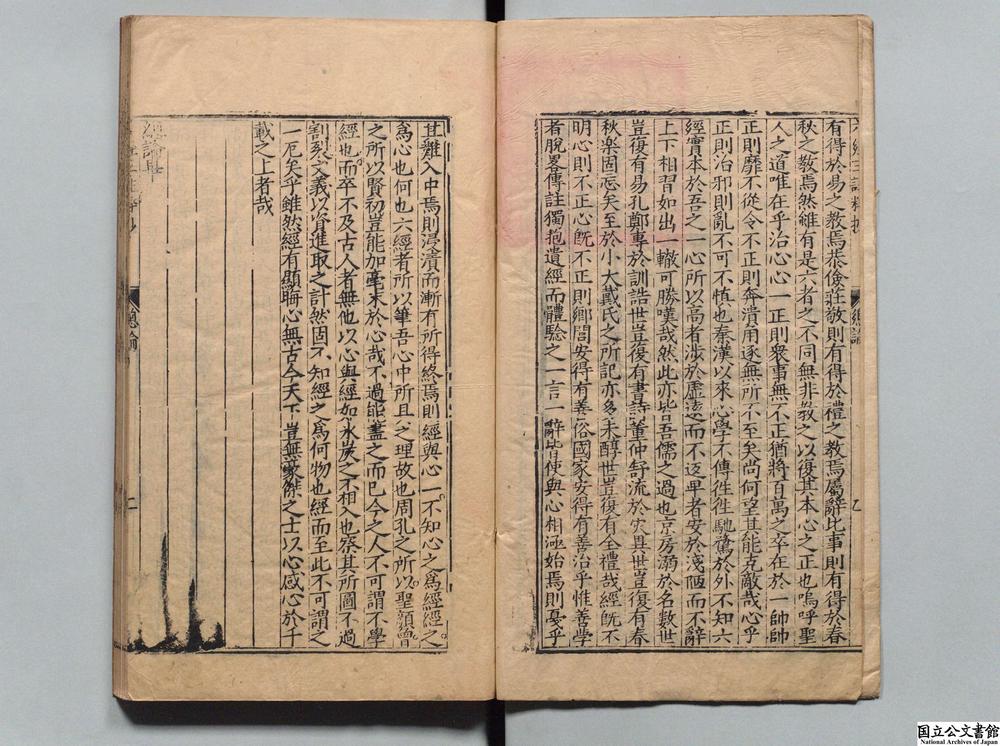 有得於易之教焉恭儉莊敬則有得於禮之教焉屬辭比事則有得於春
秋之敎焉然雖有是六者之不同無非敎之以復其本心之正也嗚呼聖
人之道唯在乎治心心一正則衆事無不正猶將百萬之卒在於一帥帥
正則靡不從令不正則奔潰角逐無所不至矣尚何望其能克敵哉心乎
正則治邪則亂不可不慎也秦漢以來心學不傳徃徃馳騖於外不知六
經實本於吾之一心所以高者渉於虛遠而不返卑者安於淺陋而不辭
上下相習如出一轍可勝嘆哉然此亦皆吾儒之過也京房溺於名數世
豈復有易孔鄭專於訓詁世豈復有書詩董仲舒流於災異世豈復有春
秋樂固忘矣至於小大戴氏之所記亦多未醇世豈復有全禮哉經旣不
明心則不正心旣不正則鄉閭安得有善俗國家安得有善治乎惟善學
者脫畧傳註獨抱遺經而體驗之一言一辭皆使與心相涵始焉則戛乎
其難入中焉則浸漬而漸有所得終焉則經與心一不知心之爲經經之
爲心也何也六經者所以筆吾心中所具之理故也周孔之所以聖顔曾
之所以賢初豈能加毫末於心哉不過能盡之而已今之人不可謂不學
經也而卒不及古人者無他以心與經如氷炭之不相入也察其所圖不過
割裂文義以資進取之計然固不知經之爲何物也經而至此不可謂之
一厄矣乎雖然經有顯晦心無古今天下豈無豪傑之士以心感心於千
載之上者哉
總論畢
總論
二
國立公文書館
National Archives of Japan